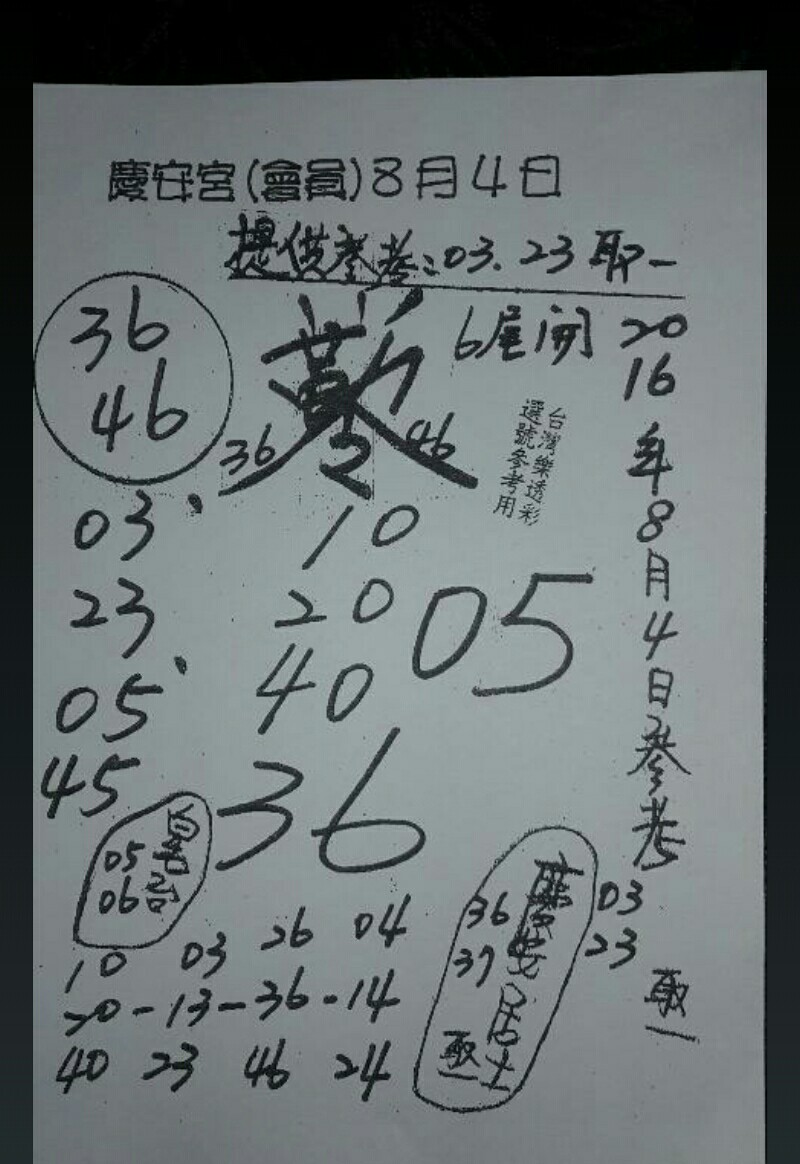 慶安宮(會員)8月4日
提供參考:03.23取一
36
46
6尾開
36
46
台灣樂透彩
選號參考用
2016年8月4日參考
03
23
05
45
10
20
40
05
36
05
06
慶安居士
36
37
取一
03
23
取一
10 03 26 04
20-13-36-14
40 23 46 24